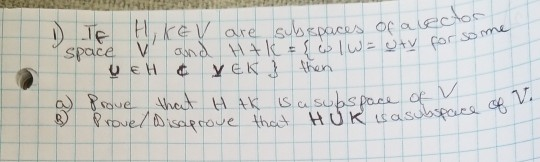 1) If H, K∈V are subspaces of a vector
space V and H+K = { w | w = u+v for some
u ∈ H & v ∈ K } then
a) Prove that H +K is a subspace of V
B) Prove/Disaprove that HUK is a subspace of V.